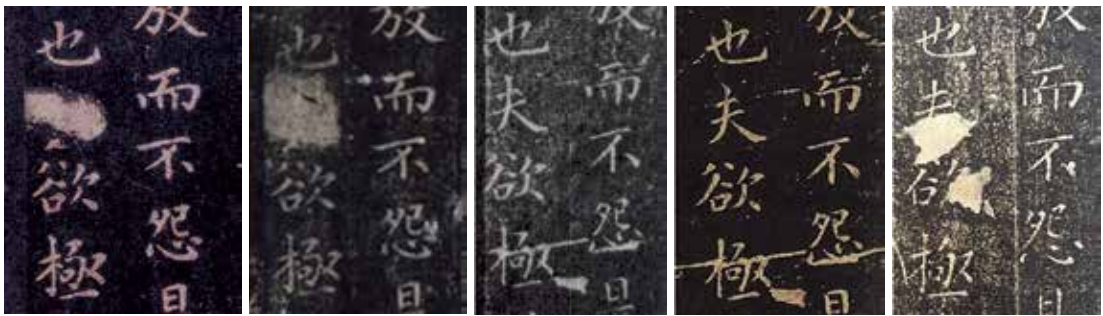 放而不怨
也欲極
放而不怨
也欲極
放而不怨
也夫欲極
放而不怨
也夫欲極
放而不怨
也夫欲極